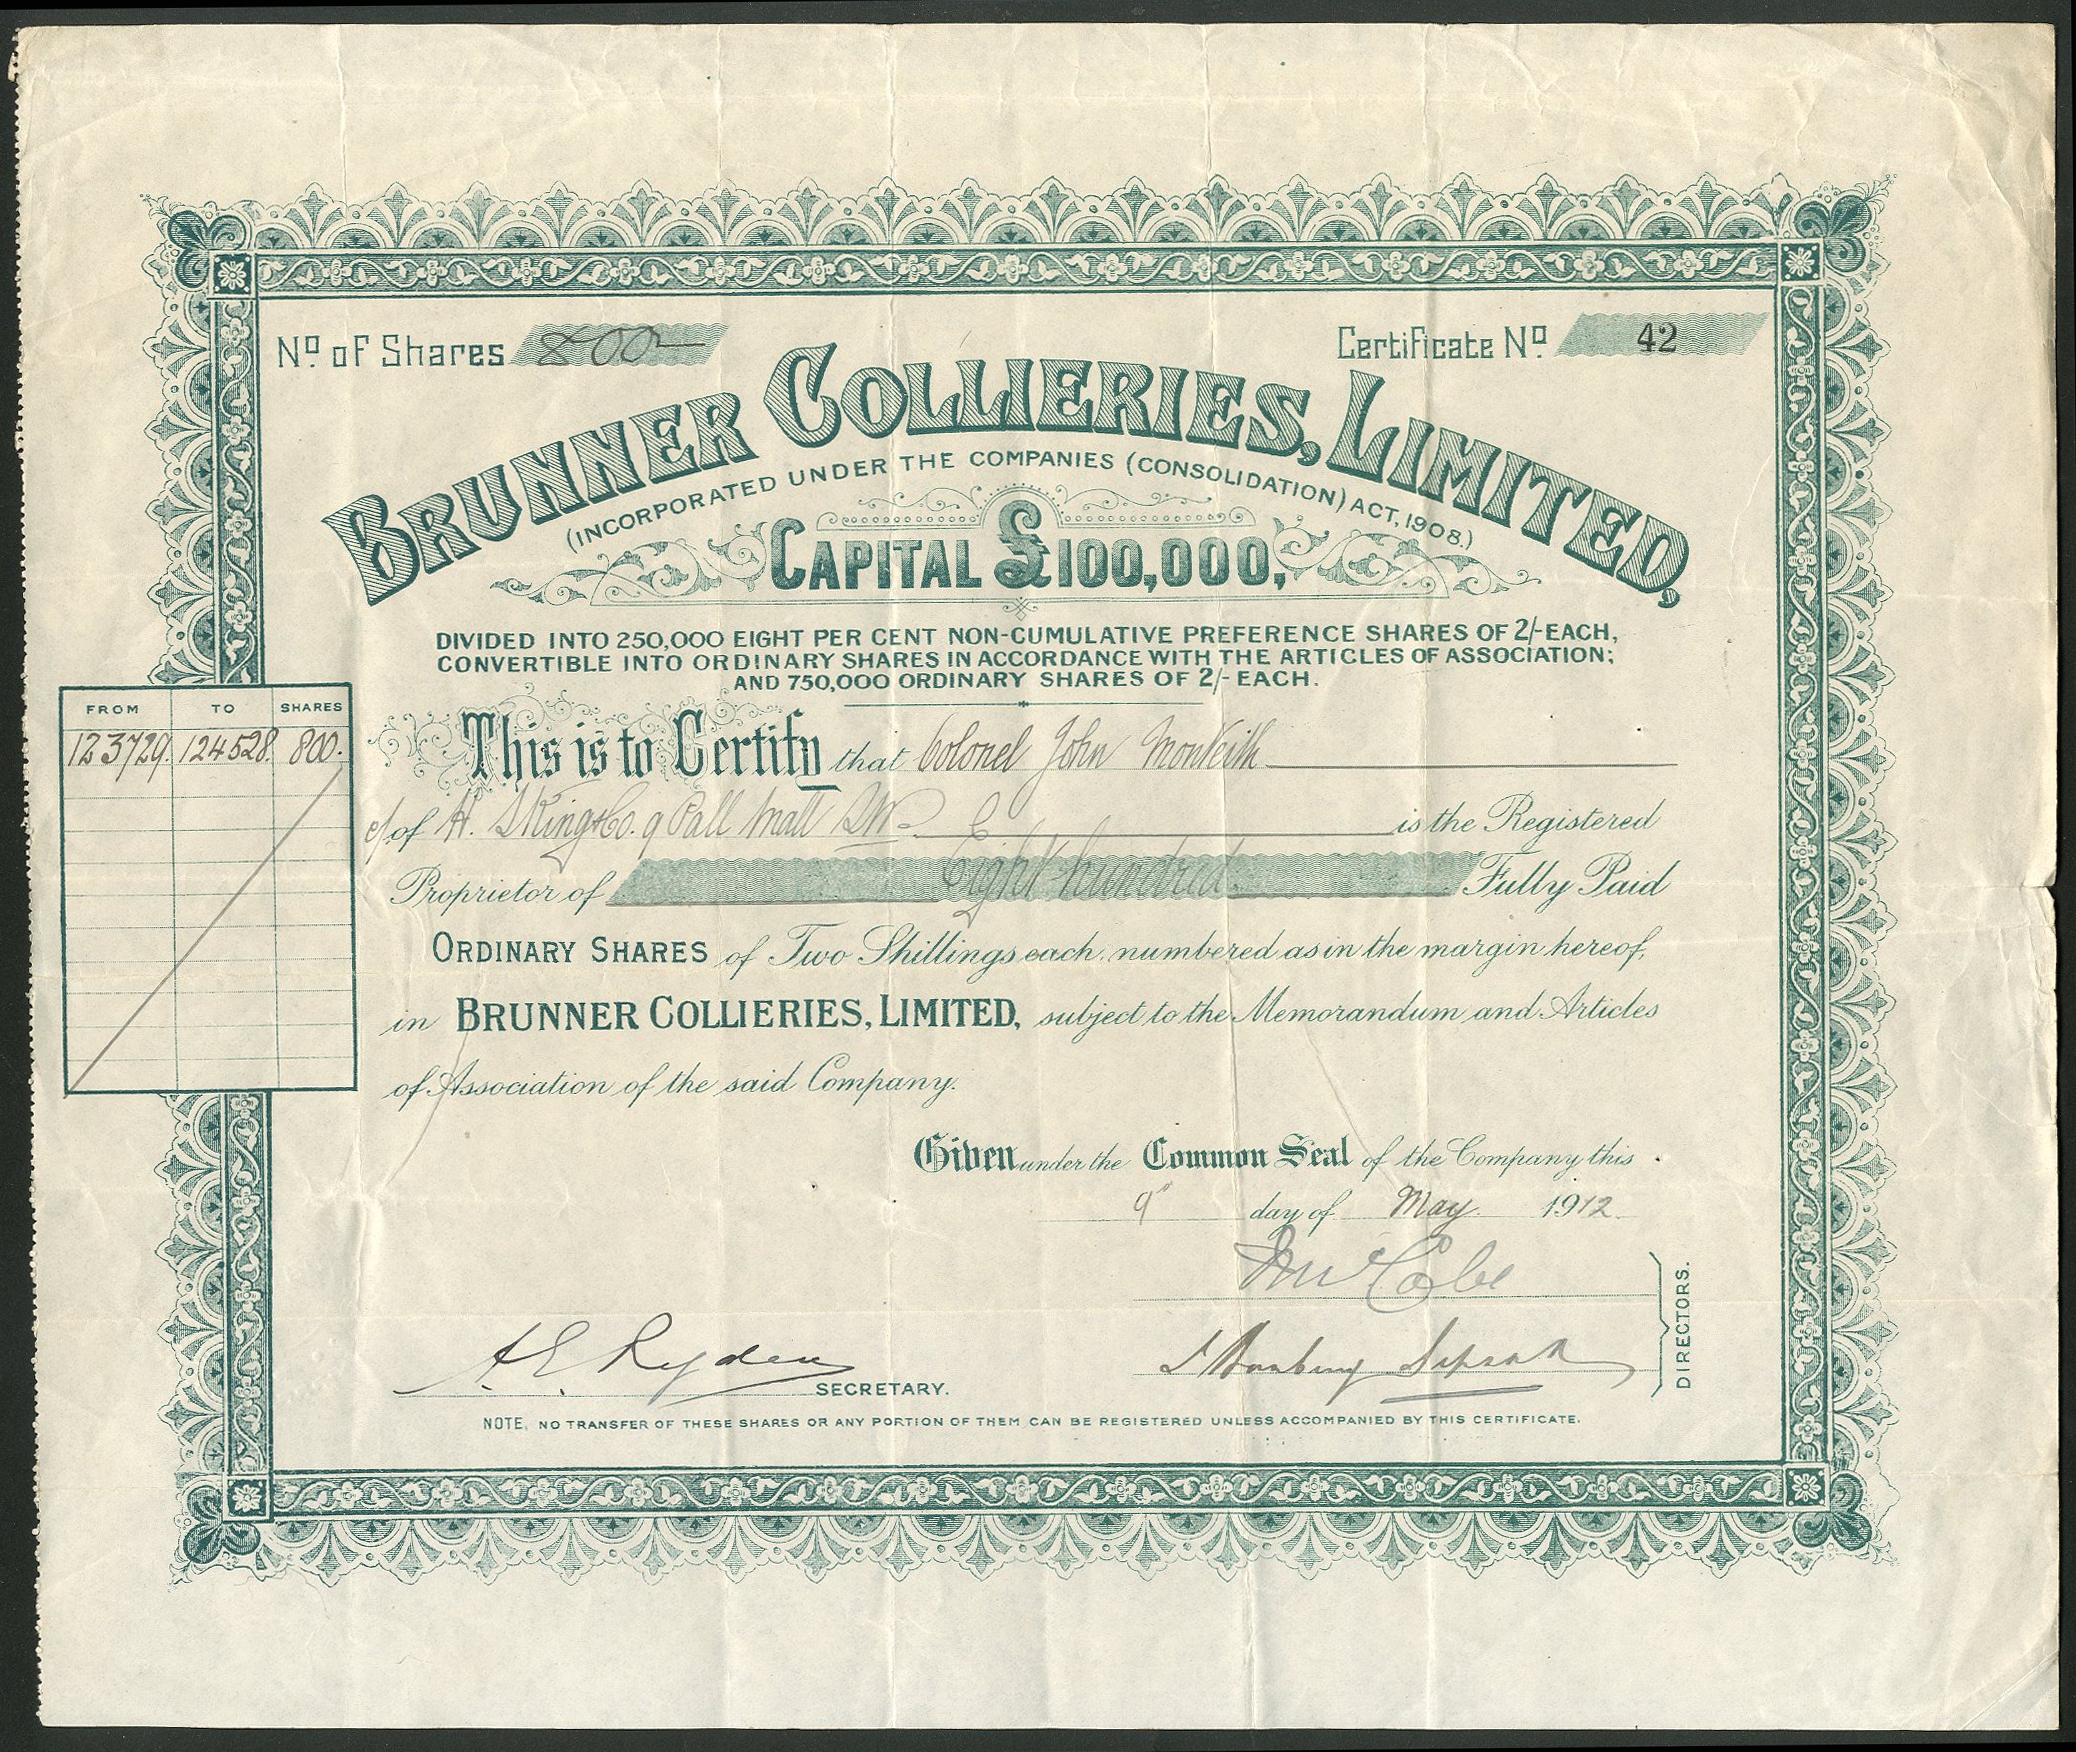 No of Shares 800
Certificate No 42
BRUNNER COLLIERIES, LIMITED,
(INCORPORATED UNDER THE COMPANIES (CONSOLIDATION) ACT, 1908.)
CAPITAL £100,000,
DIVIDED INTO 250,000 EIGHT PER CENT NON-CUMULATIVE PREFERENCE SHARES OF 2/- EACH,
CONVERTIBLE INTO ORDINARY SHARES IN ACCORDANCE WITH THE ARTICLES OF ASSOCIATION;
AND 750,000 ORDINARY SHARES OF 2/- EACH.
FROM TO SHARES
123729. 124528. 800.
This is to Certify that Colonel John Monteith
c/. of H. S King & Co. 9 Pall Mall SW. is the Registered
Proprietor of Eight hundred Fully Paid
ORDINARY SHARES of Two Shillings each, numbered as in the margin hereof,
in BRUNNER COLLIERIES, LIMITED, subject to the Memorandum and Articles
of Association of the said Company.
Given under the Common Seal of the Company this
9th day of May 1912
DIRECTORS.
A E Ryden
SECRETARY.
NOTE, NO TRANSFER OF THESE SHARES OR ANY PORTION OF THEM CAN BE REGISTERED UNLESS ACCOMPANIED BY THIS CERTIFICATE.